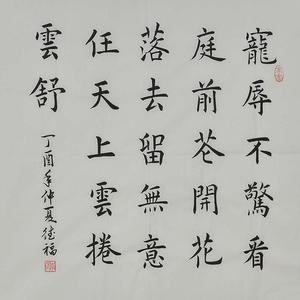 寵辱不驚看
庭前芲開花
落去留無意
任天上雲捲
雲舒
丁酉年仲夏德福